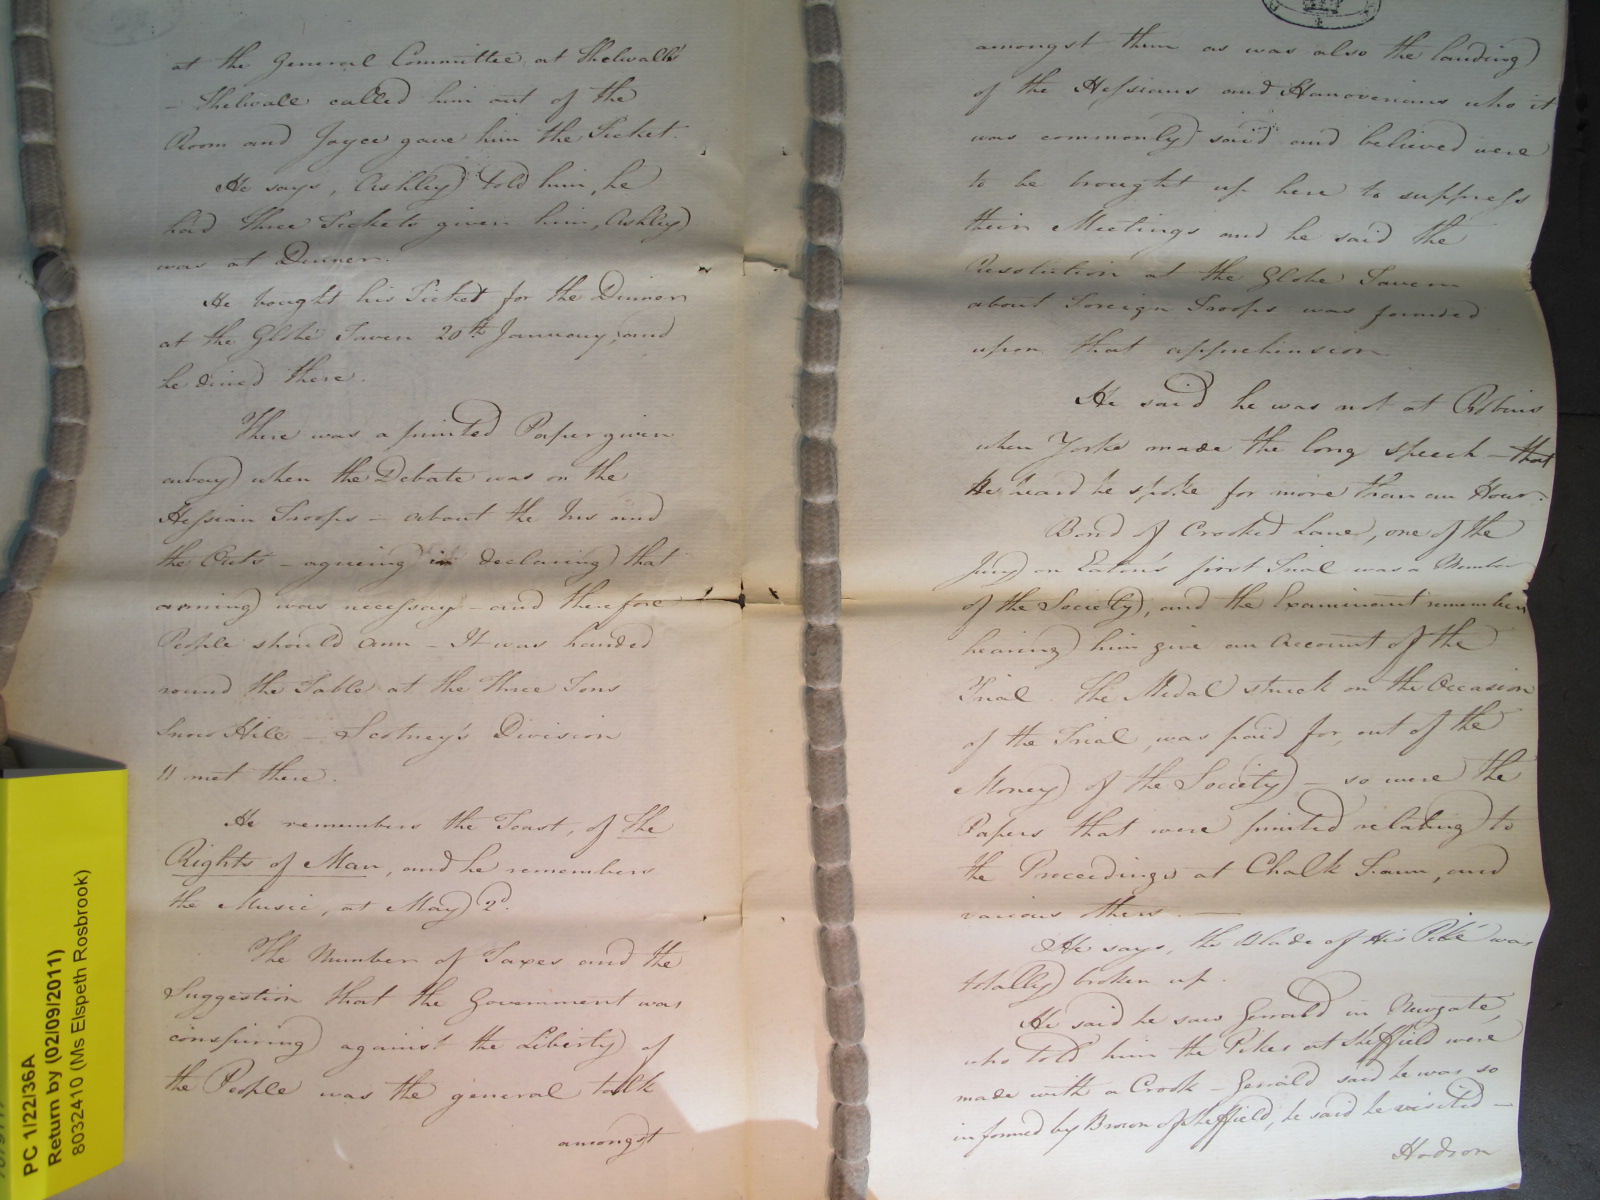 at the General Committee at Thelwalls
– Thelwall called him out of the
Room and Joyce gave him the Ticket.
He says, Ashley told him, he
had three Tickets given him, Ashley
was at Dinner.
He bought his Ticket for the Dinner
at the Globe Tavern 20th January, and
he dined there.
There was a printed Paper given
away when the Debate was on the
Hessian Troops – about the Ins and
the Outs – agreeing in declaring that
arming was necessary – and therefore
People should arm – It was handed
round the Table at the Three Tons
Snow Hill – Scotney's Division
11 met there.
He remembers the Toast, of The
Rights of Man, and he remembers
the Music, at May 2d.
The Number of Taxes and the
Suggestion that the Government was
conspiring against the Liberty of
the People was the general talk
amongst
amongst them as was also the landing
of the Hessians and Hanoverians who it
was commonly said and believed were
to be brought up here to suppress
their Meetings and he said the
Resolution at the Globe Tavern
about Foreign Troops was founded
upon that apprehension
He said he was not at Robins
when Yorke made the long speech – that
He heard he spoke for more than an Hour.
Bond of Crooked Lane, one of the
Jury on Eaton's first Trial was a Member
of the Society, and the Examinant remembers
hearing him give an Account of the
Trial. The Medal struck on the Occasion
of the Trial, was paid for, out of the
Money of the Society – so were the
Papers that were printed relating to
the Proceedings at Chalk Farm, and
various others. –
He says, the Blade of His Pike was
totally broken up.
He said he saw Gerrald in Newgate,
who told him the Pikes at Sheffield were
made with a Crook – Gerrald said he was so
informed by Brown of Sheffield, he said he visited –
Hodson
PC 1/22/36A
Return by (02/09/2011)
8032410 (Ms Elspeth Rosbrook)